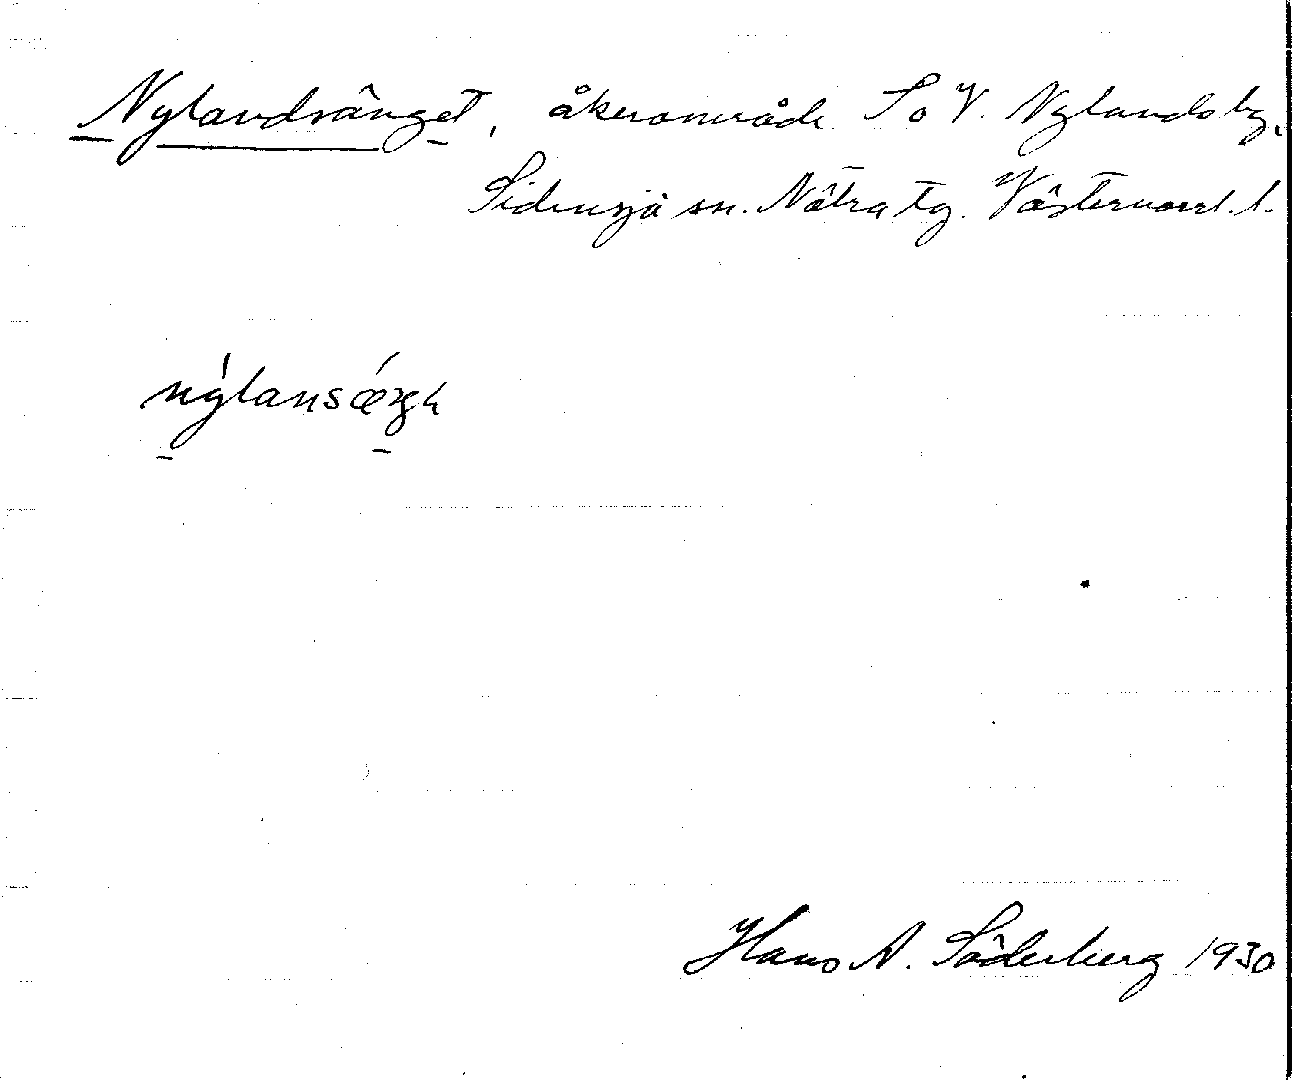 Nylandsänget, åkerområde S o V. Nylands by,
Sidensjö sn. Nätra tg. Västernorrl. l.
nýlansǽŋh
Hans A. Söderberg 1930